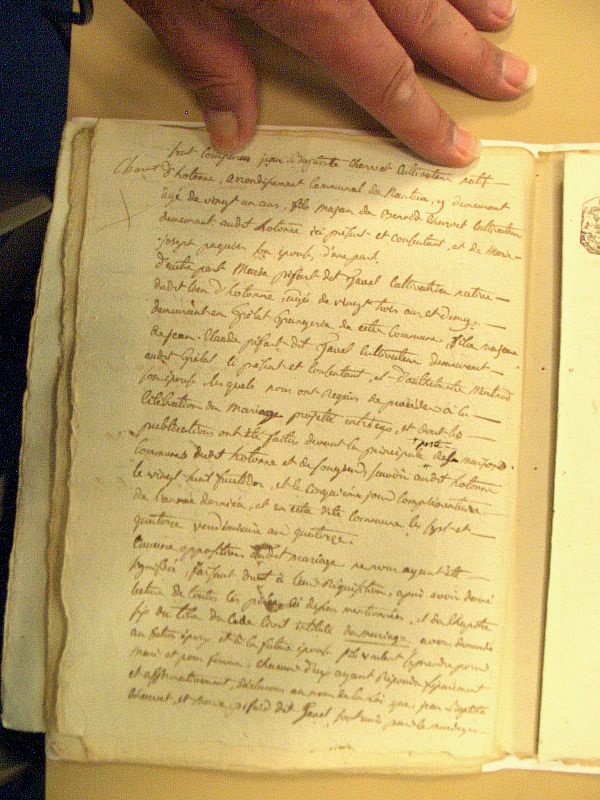 sont comparus jean Baptiste Chervet Cultivateur natif
Chervet
d'hotonne, arrondissement Communal de Nantua, y demeurant
agé de vingt un ans, fils majeur de Benoid Chervet Cultivateur
demeurant audit hotonne ici présent et consentant, et de Marie
josept paquier son épouse, d'une part.
D'autre part Marie pisart dit Javel Cultivatrice native
dudit lieu d'hotonne, agée de vingt trois ans et demy.
demeurant en Grélat Grangerie de cette Commune, fille majeure
de jean Claude pisart dit Javel Cultivateur demeurant
audit Grélat ici présent et consentant, et d'anthelmette
son épouse, lesquels nous ont Requis de procéder à la
célébration du mariage projetté entr'eux, et dont les
publications ont été faites devant la principale porte des maisons
communes dudit hotonne et de songieu, savoir audit hotonne
le vingt huit fructidor, et le cinquième jour complémentaire
de l'année dernière, et en cette dite commune les sept et
quatorze vendémiaire an quatorze.
Aucune opposition audit mariage ne nous ayant été
signifiée, faisant droit à leur Réquisition, après avoir donné
lecture de toutes les pièces ci dessus mentionnées, et du Chapitre
six du titre du Code Civil intitulé du mariage, avons demandé
au futur époux et à la future épouse s'ils veulent se prendre pour
mari et pour femme, chacun d'eux ayant Répondu séparément
et affirmativement, déclarons au nom de la Loi que jean Baptiste
Chervet, et Marie pisard dit Javel, sont unis par le mariage